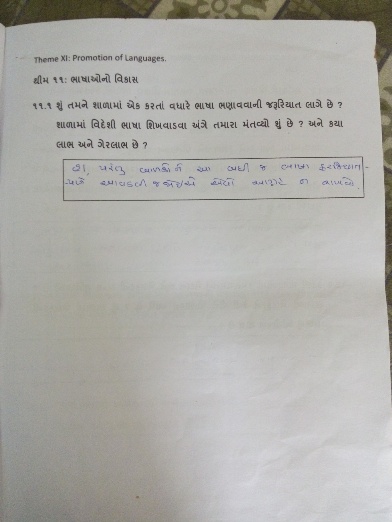 Theme XI: Promotion of Languages.
થીમ ૧૧: ભાષાઓનો વિકાસ
૧૧.૧ શું તમને શાળામાં એક કરતાં વધારે ભાષા ભણાવવાની જરૂરિયાત લાગે છે ?
શાળામાં વિદેશી ભાષા શિખવાડવા અંગે તમારા મંતવ્યો શું છે ? અને કયા
લાભ અને ગેરલાભ છે ?
હા, પરંતુ બાળકોને આ બધી જ ભાષા ફરજિયાત-
પણે આવડવી જ જોઈએ એવો આગ્રહ ન રાખવો.